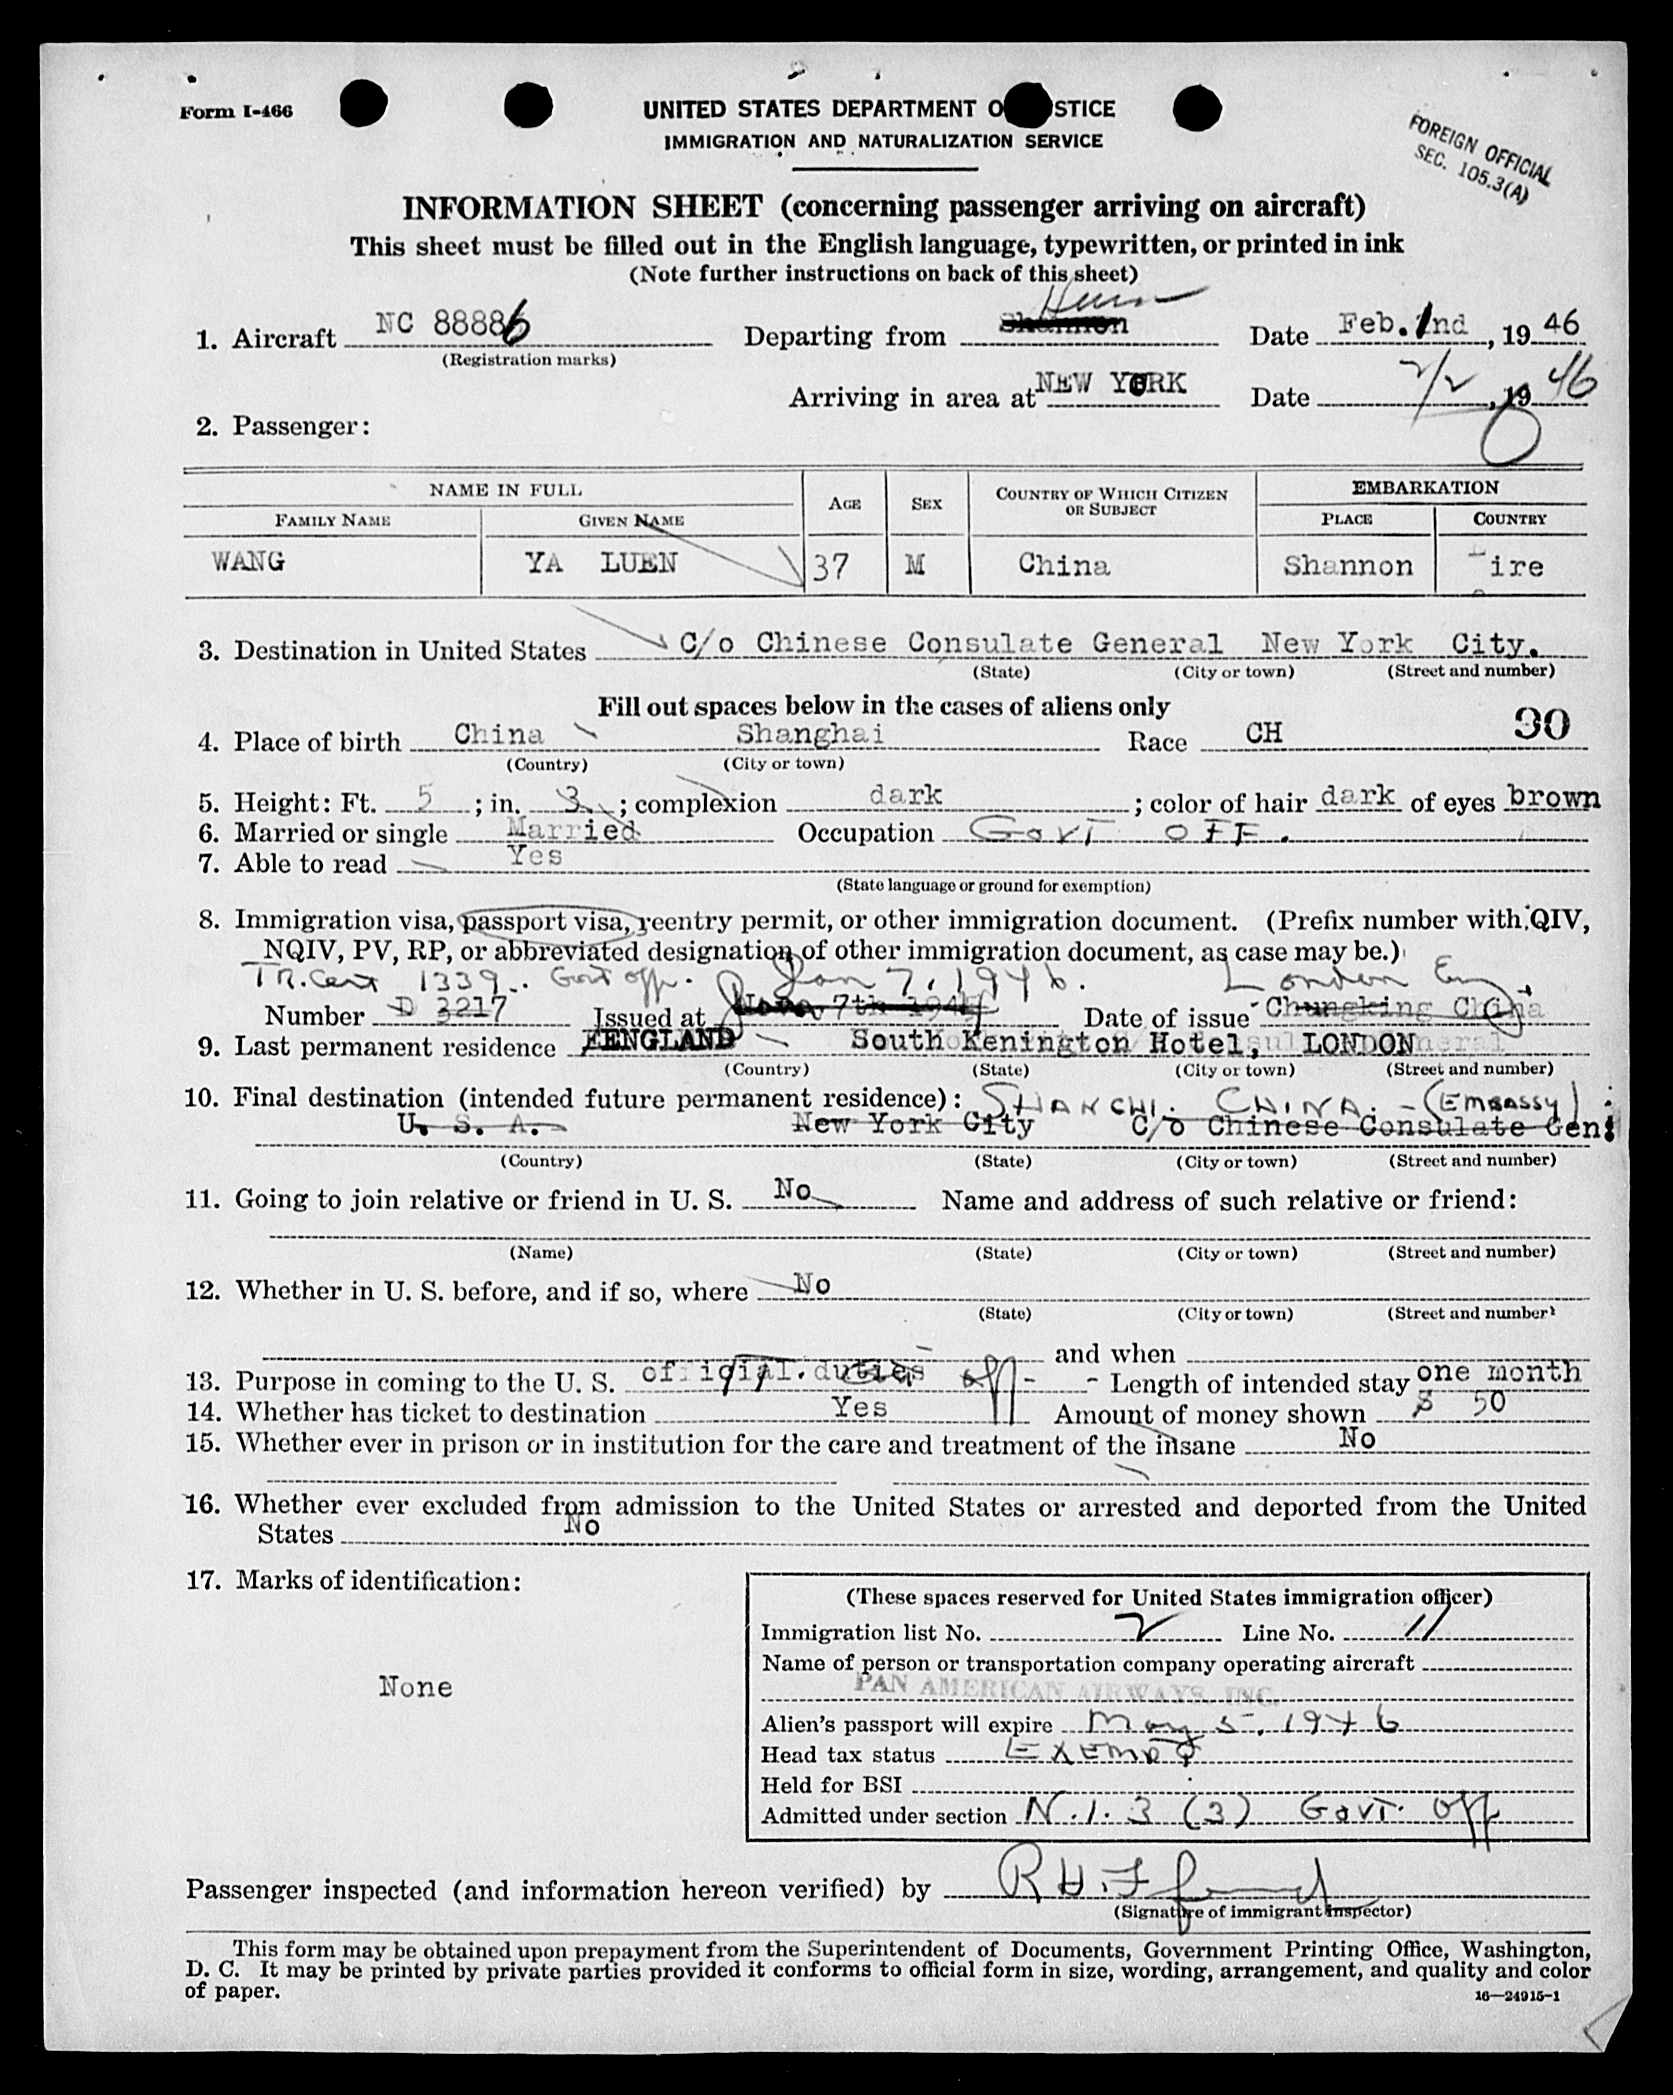 Form I-466
UNITED STATES DEPARTMENT O STICE
IMMIGRATION AND NATURALIZATION SERVICE
FOREIGN OFFICIAL
SEC. 105.3(A)
INFORMATION SHEET (concerning passenger arriving on aircraft)
This sheet must be filled out in the English language, typewritten, or printed in ink
(Note further instructions on back of this sheet)
1. Aircraft NC 88886 Departing from Shannon Date Feb. 2nd, 19 46
(Registration marks)
Arriving in area at NEW YORK Date 2/2, 19 46
2. Passenger:
NAME IN FULL AGE SEX COUNTRY OF WHICH CITIZEN OR SUBJECT EMBARKATION
FAMILY NAME GIVEN NAME PLACE COUNTRY
WANG YA LUEN 37 M China Shannon Eire
3. Destination in United States C/o Chinese Consulate General New York City.
(State) (City or town) (Street and number)
Fill out spaces below in the cases of aliens only
4. Place of birth China Shanghai Race CH 90
(Country) (City or town)
5. Height: Ft. 5; in. 3; complexion dark; color of hair dark of eyes brown
6. Married or single Married Occupation Govt Off.
7. Able to read Yes
(State language or ground for exemption)
8. Immigration visa, passport visa, reentry permit, or other immigration document. (Prefix number with QIV,
NQIV, PV, RP, or abbreviated designation of other immigration document, as case may be.)
TR. Cert 1339. Govt off. Jan 7, 1946. London Eng
Number D 3217 Issued at 7th Date of issue Chungking China
9. Last permanent residence ENGLAND South Kenington Hotel, LONDON
(Country) (State) (City or town) (Street and number)
10. Final destination (intended future permanent residence): SHANGHI. CHINA. - (EMBASSY)
U. S. A. New York City C/o Chinese Consulate Gen.
(Country) (State) (City or town) (Street and number)
11. Going to join relative or friend in U. S. No Name and address of such relative or friend:
(Name) (State) (City or town) (Street and number)
12. Whether in U. S. before, and if so, where No
(State) (City or town) (Street and number)
and when
13. Purpose in coming to the U. S. official duties off - Length of intended stay one month
14. Whether has ticket to destination Yes Amount of money shown $ 50
15. Whether ever in prison or in institution for the care and treatment of the insane No
16. Whether ever excluded from admission to the United States or arrested and deported from the United
States No
17. Marks of identification:
None
(These spaces reserved for United States immigration officer)
Immigration list No. 2 Line No. 11
Name of person or transportation company operating aircraft
PAN AMERICAN AIRWAYS, INC.
Alien's passport will expire May 5, 1946
Head tax status Exempt
Held for BSI
Admitted under section N.1.3 (3) Govt. Off
Passenger inspected (and information hereon verified) by
(Signature of immigrant inspector)
This form may be obtained upon prepayment from the Superintendent of Documents, Government Printing Office, Washington,
D. C. It may be printed by private parties provided it conforms to official form in size, wording, arrangement, and quality and color
of paper.
16—24915-1